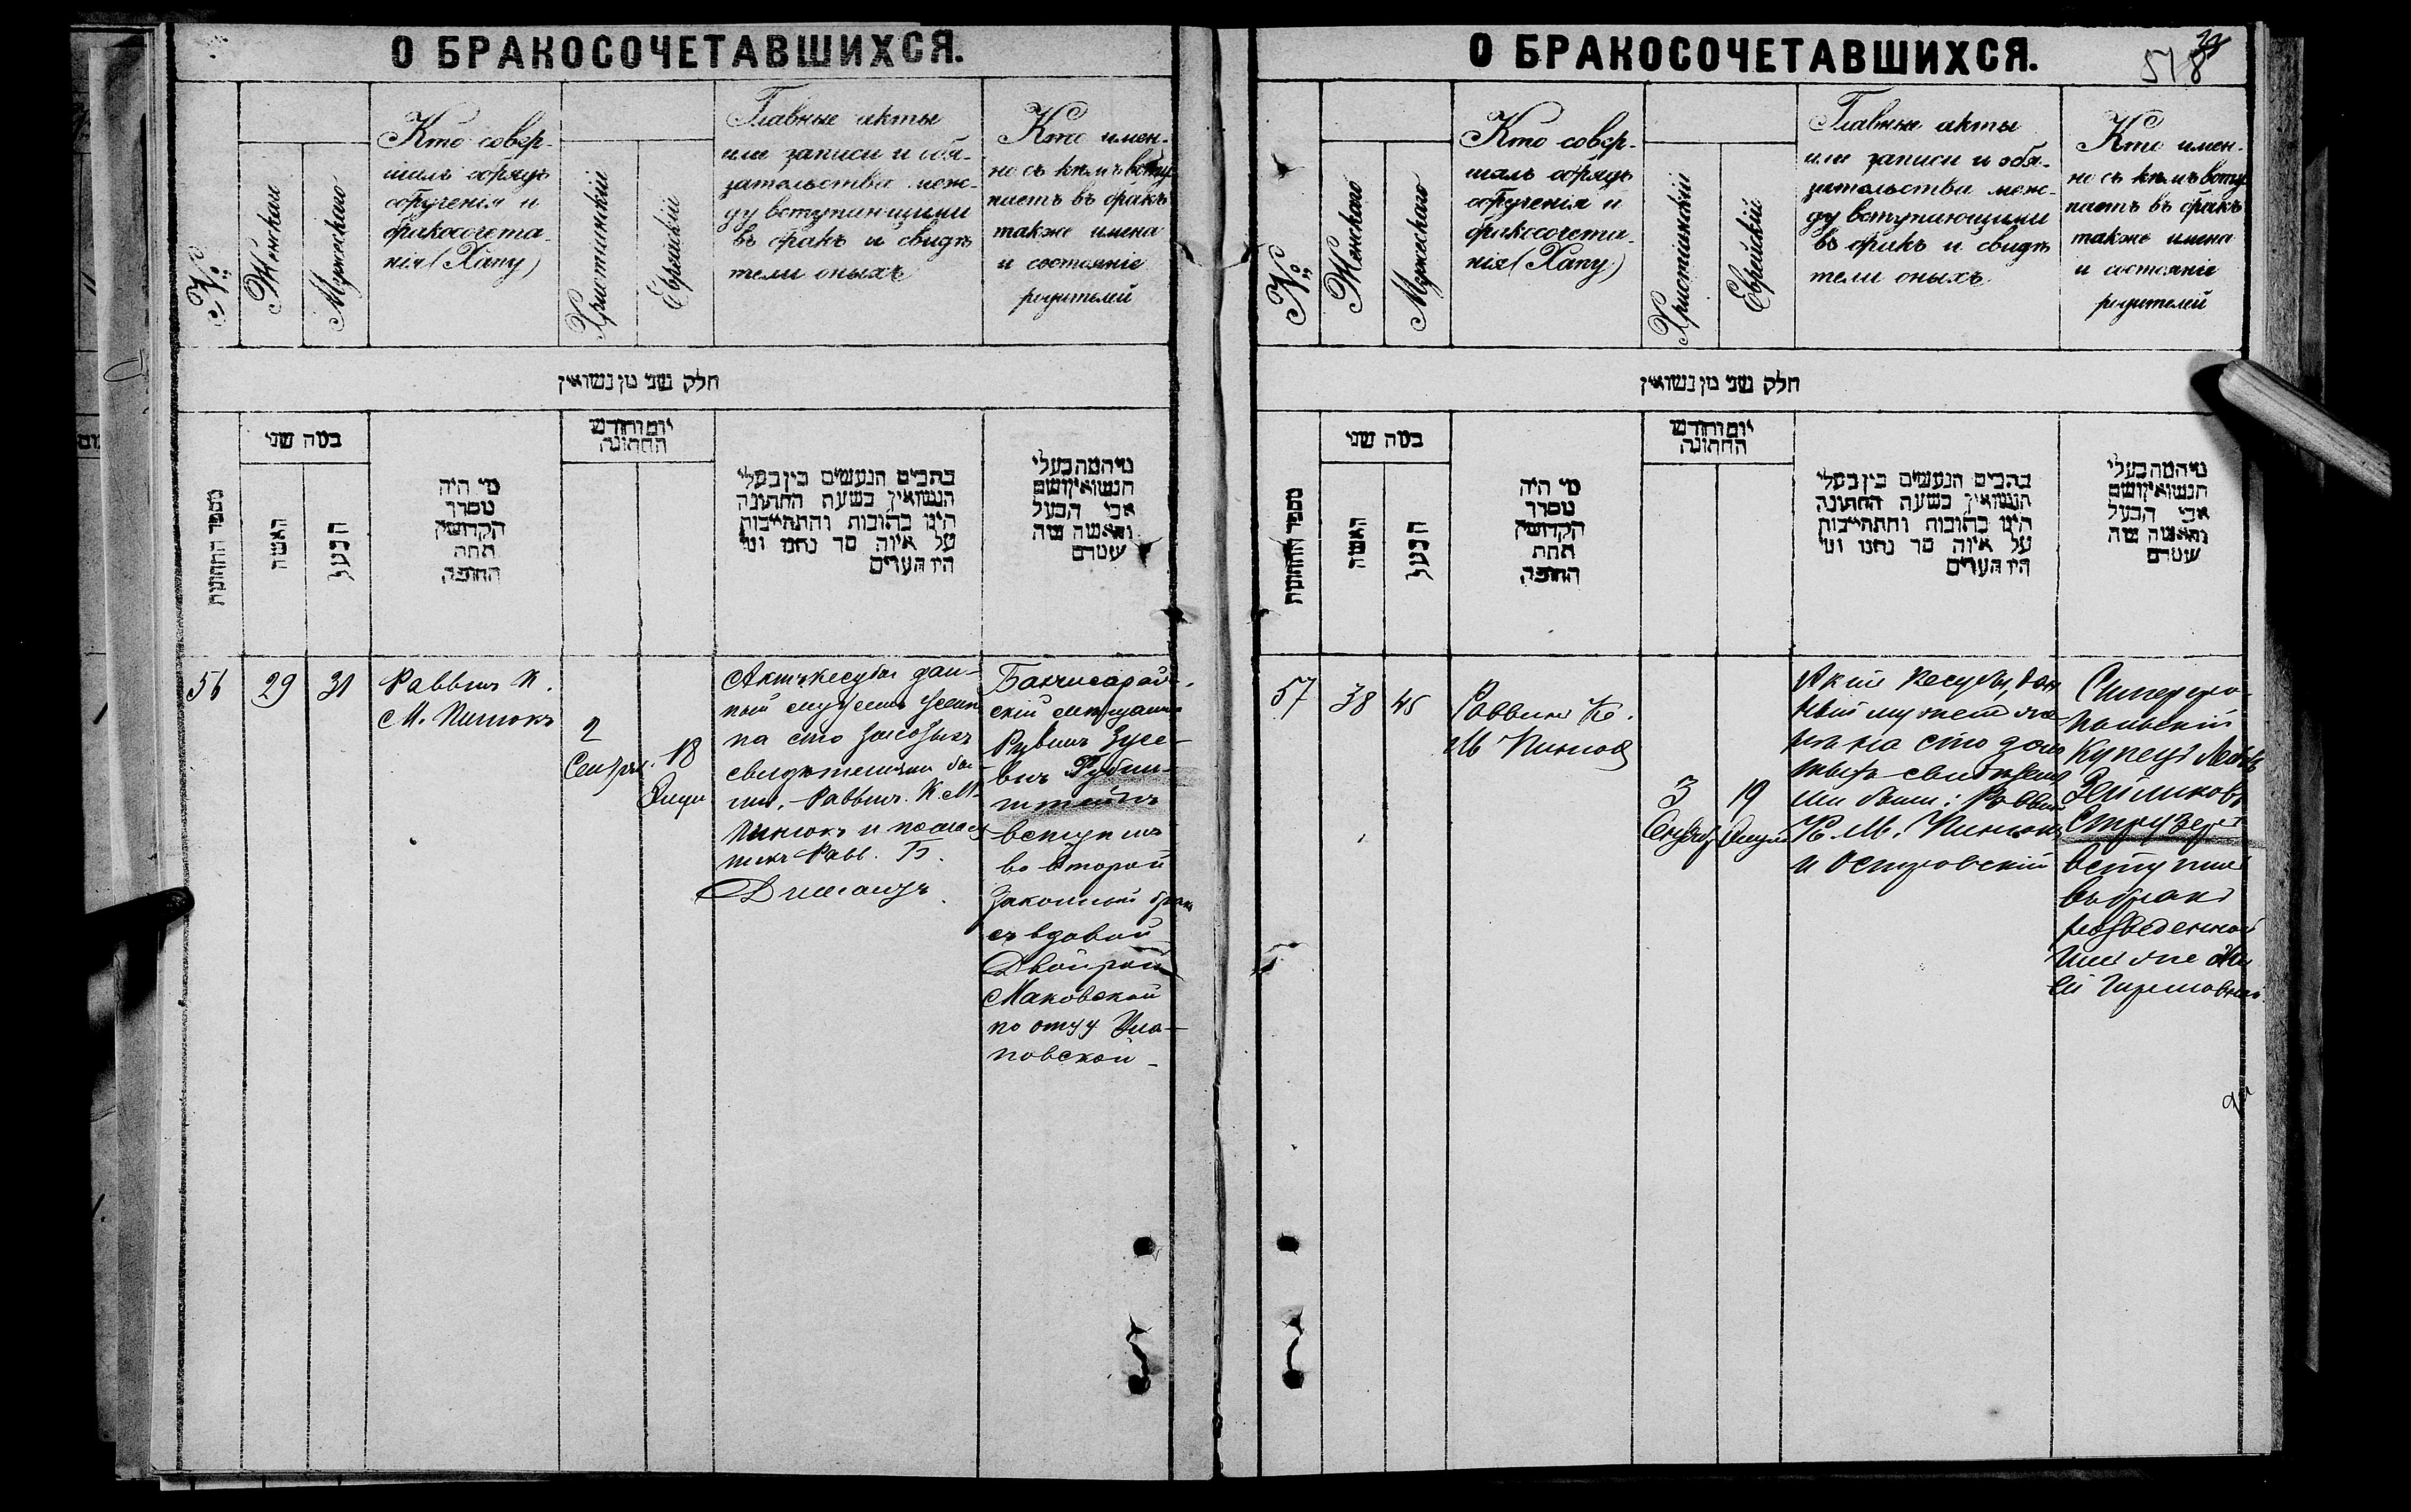 О БРАКОСОЧЕТАВШИХСЯ.
№
Женскаго
Мужескаго
Кто совер-
шалъ обрядъ
обрученія и
бракосочета-
нія (Хапу)
Христіанскій
Еврейскій
Главные акты
или записи и обя-
зательства меж-
ду вступающими
въ бракъ и свидѣ
тели оныхъ
Кто имен-
но съ кѣмъ всту-
паетъ въ бракъ
также имена
и состояніе
родителей
חלק שני מן נשואין
מספר החתונות
כמה שני
האשה
הבעל
מי היה
מסדר
הקדושין
תחת
החופה
יום וחודש
החתונה
כתבים הנעשים בין בעלי
הנשואין בשעת החתונה
היינו כתובות והתחייבות
על איזה סך נתנו ומי
היו העדים
מי המה בעלי
הנשואין ושם
אבי הבעל
והאשה
56
29
31
Раввинъ К.
М. Пинюкъ
2
Сентяб.
18
Элулъ
Актъ кесубы дан-
ный мужемъ женѣ
на сто золотыхъ
свидѣтелями бы-
ли, Раввинъ К. М.
Пинюкъ и помощ
никъ Равв. Б.
Бахчисарай-
скій мѣщанинъ
Рувинъ Зусе-
вичъ Рубин-
штейнъ
вступилъ
во второй
законный бракъ
съ вдовой
Двойрой
Маковской
по отцу
О БРАКОСОЧЕТАВШИХСЯ.
518
№
Женскаго
Мужескаго
Кто совер-
шалъ обрядъ
обрученія и
бракосочета-
нія (Хапу)
Христіанскій
Еврейскій
Главные акты
или записи и обя-
зательства меж-
ду вступающими
въ бракъ и свидѣ
тели оныхъ
Кто имен-
но съ кѣмъ всту-
паетъ въ бракъ
также имена
и состояніе
родителей
חלק שני מן נשואין
מספר החתונות
כמה שני
האשה
הבעל
מי היה
מסדר
הקדושין
תחת
החופה
יום וחודש
החתונה
כתבים הנעשים בין בעלי
הנשואין בשעת החתונה
היינו כתובות והתחייבות
על איזה סך נתנו ומי
היו העדים
מי המה בעלי
הנשואין ושם
אבי הבעל
והאשה
57
38
45
Раввинъ К.
М Пинюкъ
3
Сентяб
19
Элулъ
Актъ кесубы, дан
ный мужемъ же-
нѣ на сто золо
тыхъ свидѣтеля
ми были: Раввинъ
К. М. Пинюкъ
и Островскій
Симферо-
польскій
купецъ
вступилъ
въ бракъ
разведенной